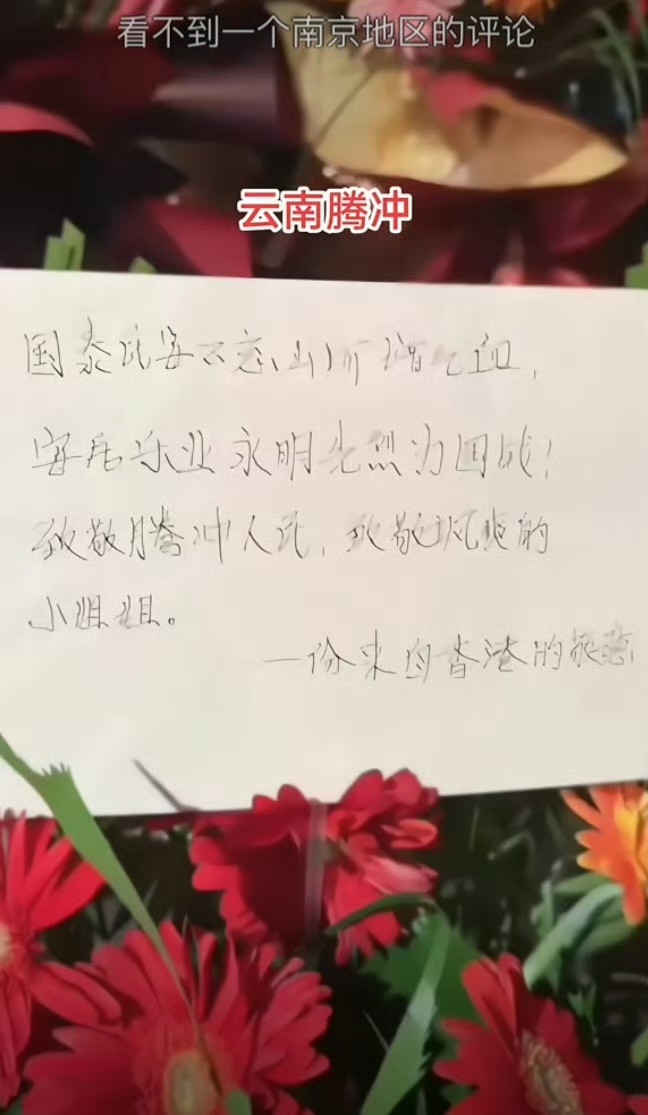 看不到一个南京地区的评论
云南腾冲
国泰民安不忘山河 血,
安居乐业永明先烈为国战!
致敬腾冲人民, 致敬 的
小姐姐。
一份来自香港的敬意